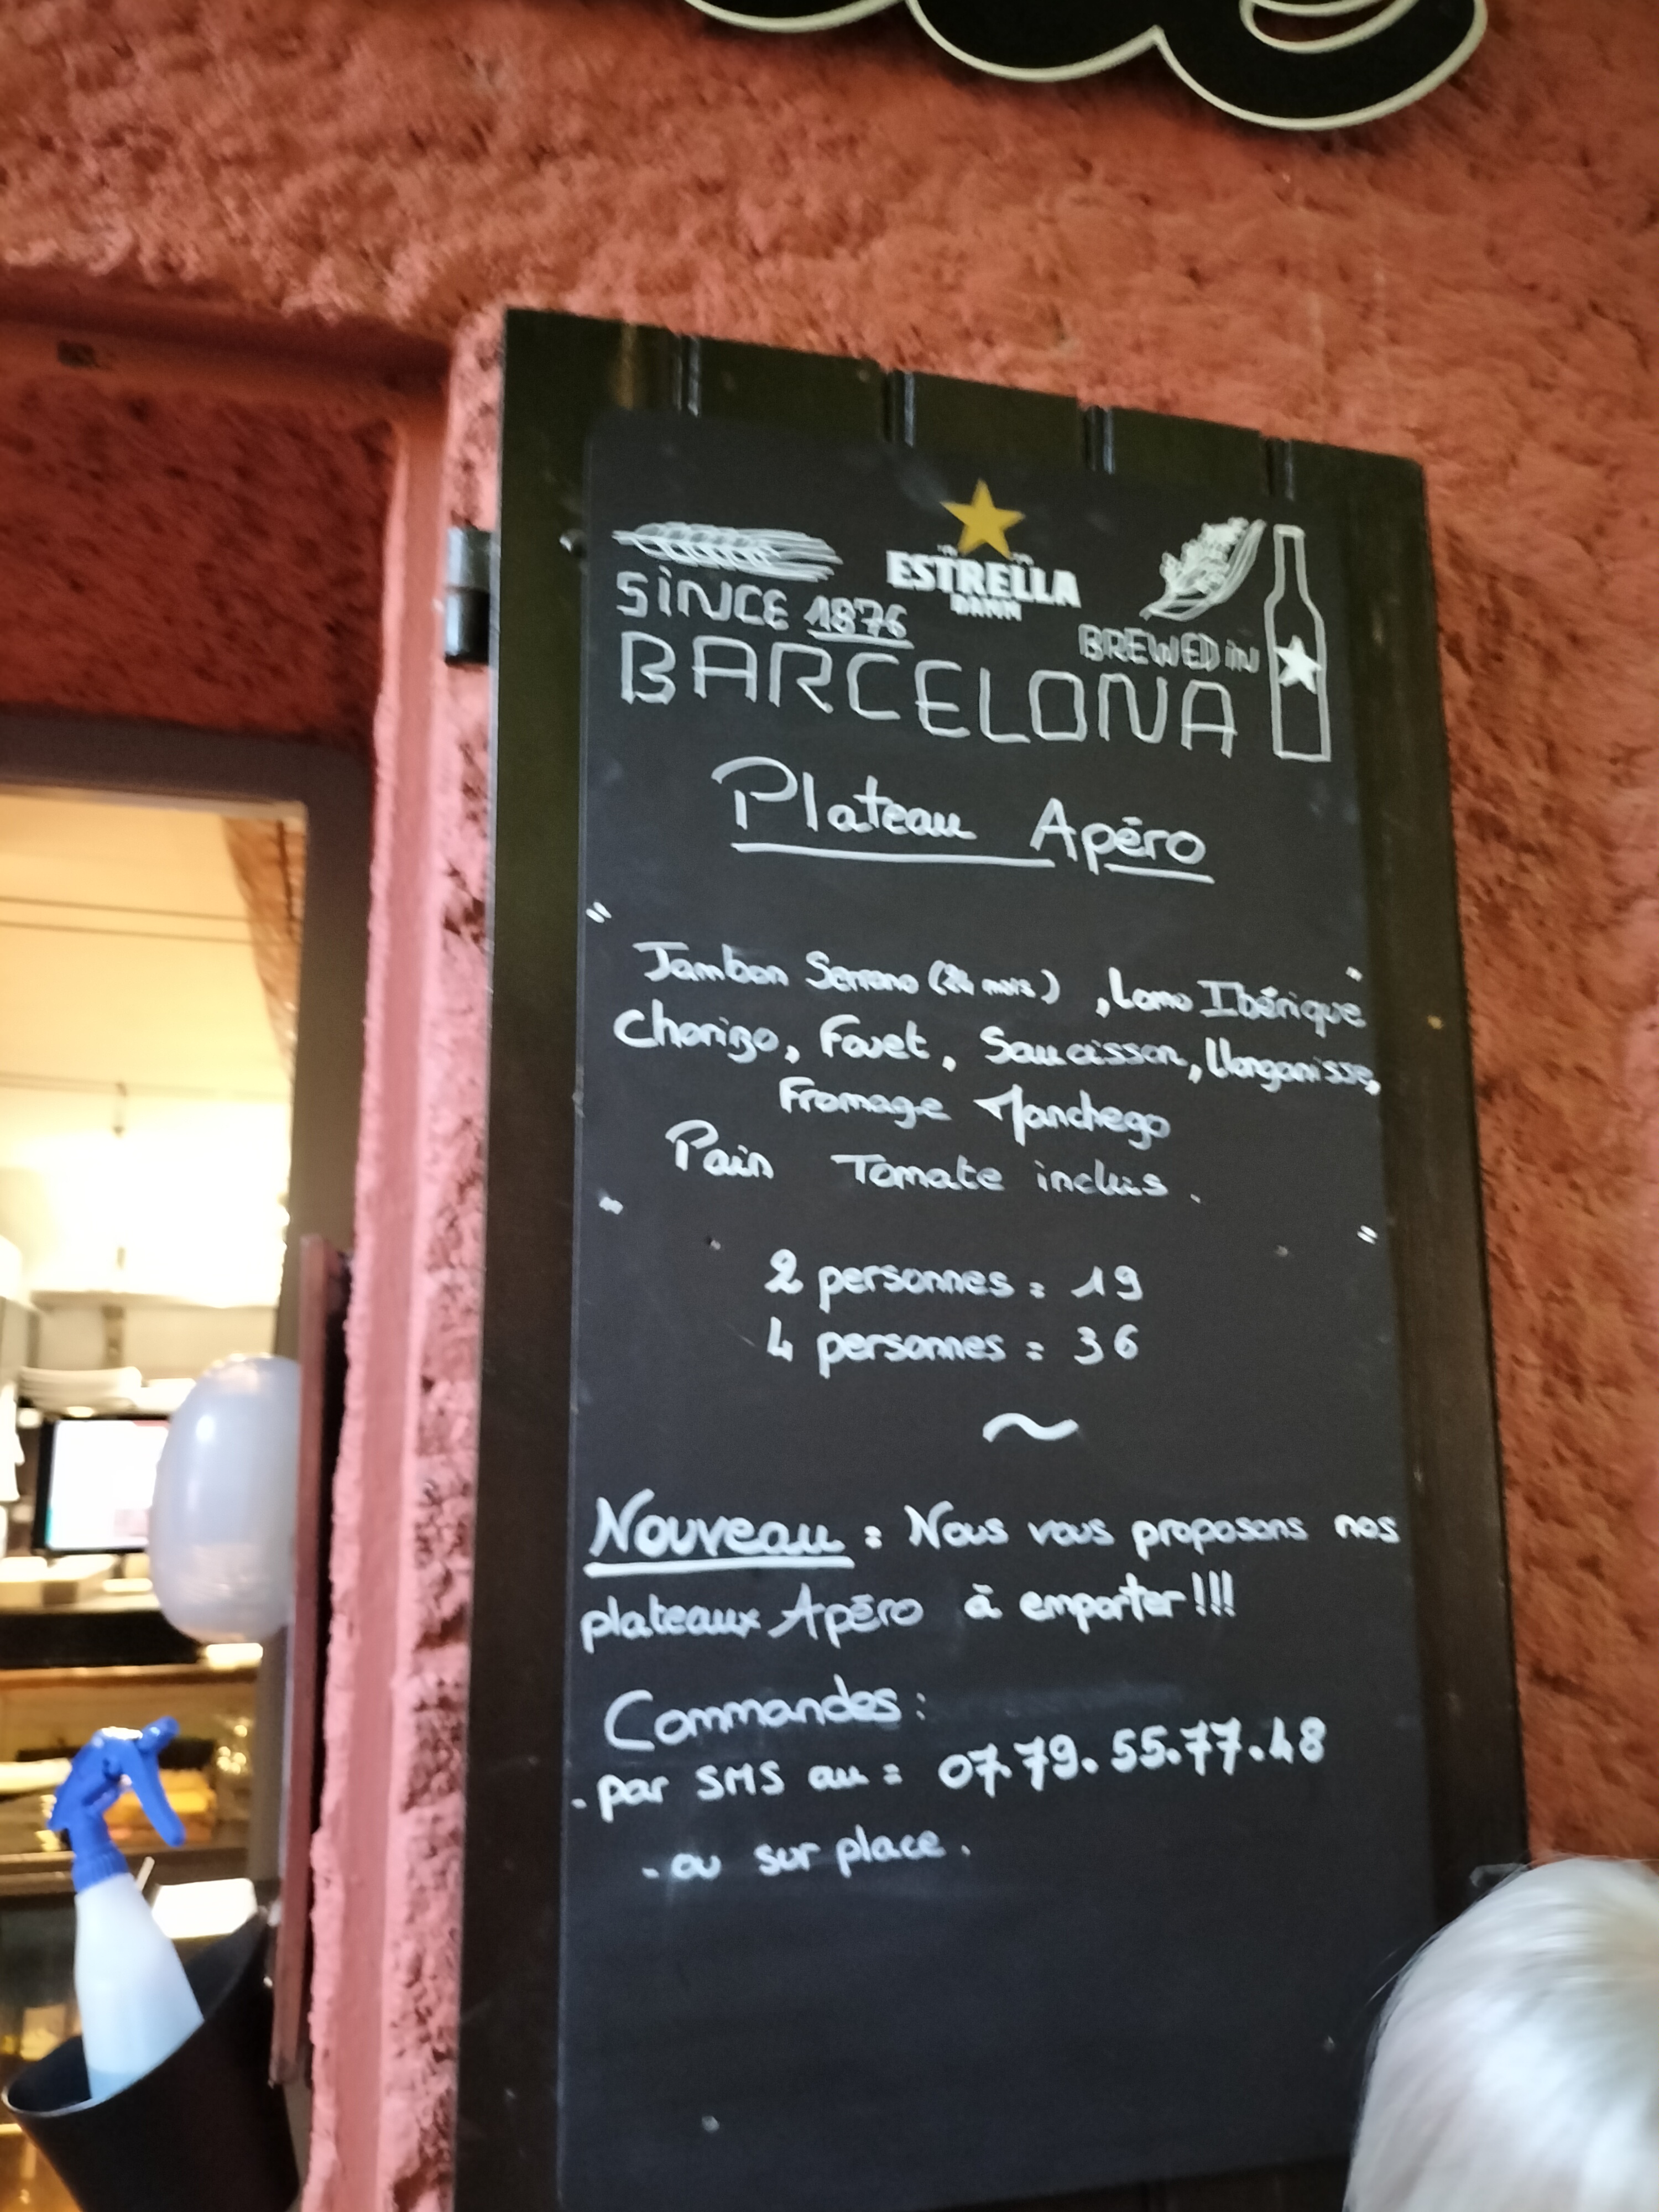 ESTRELLA
DAMM
SINCE 1876
BREWED IN
BARCELONA
Plateau Apéro
"
Jambon Serrano (24 mois), Lomo Ibérique "
Chorizo, Fouet, Saucisson, Llonganisse,
Fromage Manchego
Pain Tomate inclus.
" "
2 personnes = 19
4 personnes = 36
~
Nouveau : Nous vous proposons nos
plateaux Apéro à emporter!!!
Commandes:
- par SMS au = 07.79.55.77.48
- ou sur place.